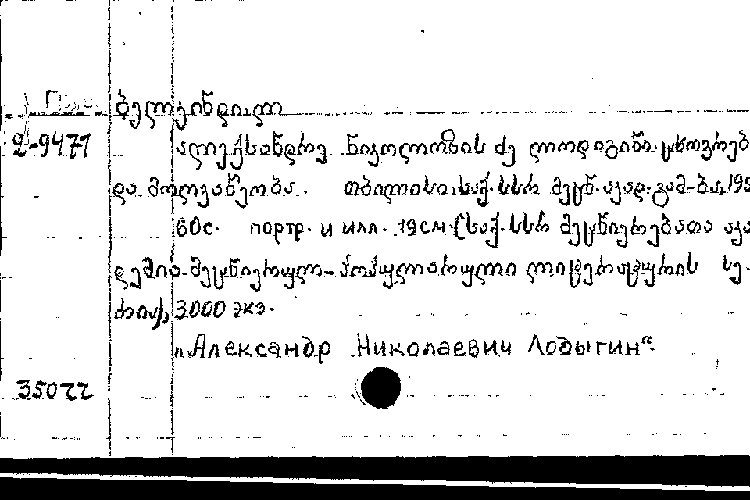 ბელკინდი. ლ
2-9471 ალექსანდრე ნიკოლოზის ძე ლოდიგინი. ცხოვრებ
და მოღვაწეობა. თბილისი. საქ. სსრ მეცნ. აკად. გამ-ბა, 195
60с. портр. и илл. 19см. (საქ. სსრ მეცნიერებათა აკა
დემია. მეცნიერულ-პოპულარული ლიტერატურის სე-
რია). 3000 экз.
„Александр Николаевич Лодыгин“.
35022